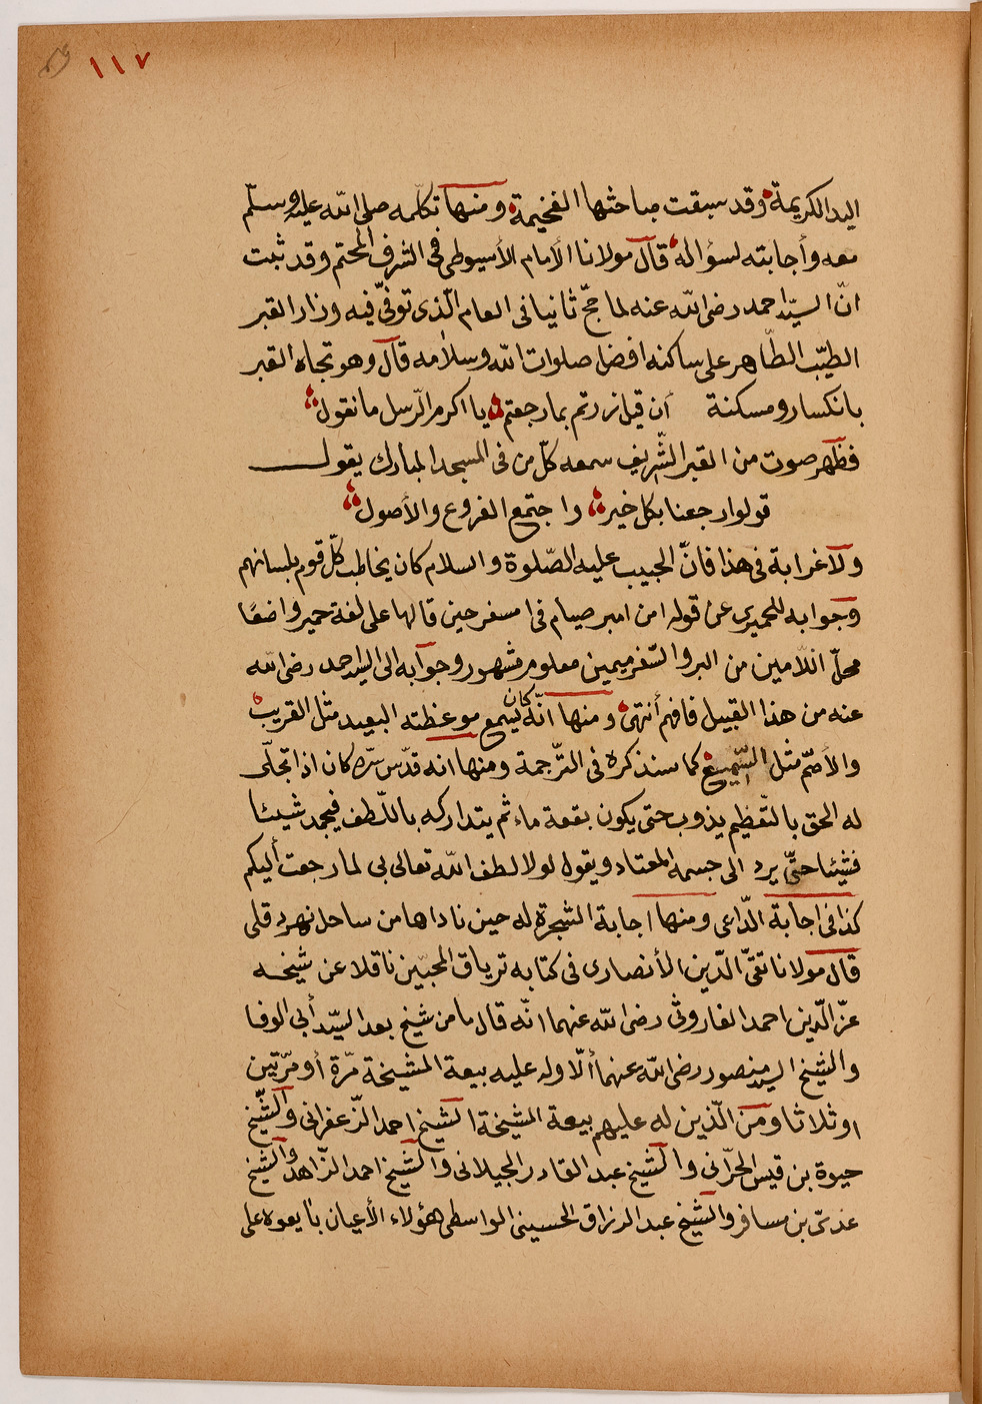 ١١٧
اليد الكريمة وقد سبقت مباحثها الفخيمة ومنها تكلّمه صلى الله عليه وسلّم
معه وأجابته لسؤاله قال مولانا الأمام الأسيوطى فى الشرف المحتم وقد ثبت
انّ السيّد احمد رضى الله عنه لما حجّ ثانيا فى العام الّذى توفّى فيه وزار القبر
الطيّب الطّاهر على ساكنه افضل صلوات الله وسلامه قال وهو تجاه القبر
بانكسار ومسكنة أن قيل زرتم بما رجعتم يا اكرم الرّسل ما نقول
فظهر صوت من القبر الشّريف سمعه كلّ من فى المسجد المبارك يقول
قولوا رجعنا بكل خير واجتمع الفروع والأصول
ولا غرابة فى هذا فانّ الحبيب عليه الصّلوة والسلام كان يخاطب كلّ قوم بلسانهم
وجوابه للحميرى عن قوله امن امبر صيام فى امسفر حين قالها على لغة حمير واضعًا
محلّ اللّامين من البر والسّفر ميمين معلوم مشهور وجوابه الى السيد احمد رضى الله
عنه من هذا القبيل فافهم أنتهى ومنها انّه كان يسمع موعظته البعيد مثل القريب
والأصّم مثل السّميع كما سنذكره فى التّرجمة ومنها انه قدّس سرّه كان اذا تجلّى
له الحق بالتّعظيم يذوب حتى يكون بقعة ماء ثم يتداركه باللّطف فيجمد شيئا
فشيئا حتّى يرد الى جسمه المعتاد ويقول لولا لطف الله تعالى بى لما رجعت أليكم
كذا فى اجابة الدّاعى ومنها اجابة الشجرة له حين ناداها من ساحل نهر دقلى
قال مولانا تقىّ الدّين الأنصارى فى كتابه ترياق المحبّين ناقلا عن شيخه
عزّ الدّين احمد الفاروثى رضى الله عنهما انّه قال ما من شيخ بعد السيّد أبى الوفا
والشيخ السيد منصور رضى الله عنهما ألّا وله عليه بيعة المشيخة مرّة أو مرّتين
او ثلاثا ومن الّذين له عليهم بيعة المشيخة الشيخ احمد الزّعفرانى والشّيخ
حيوة بن قيس الحرّانى والشيخ عبد القادر الجيلانى والشيخ احمد الزّاهد والشيخ
عدىّ بن مسافر والشيخ عبد الرزاق الحسينى الواسطى هؤلاء الأعيان بايعوه على